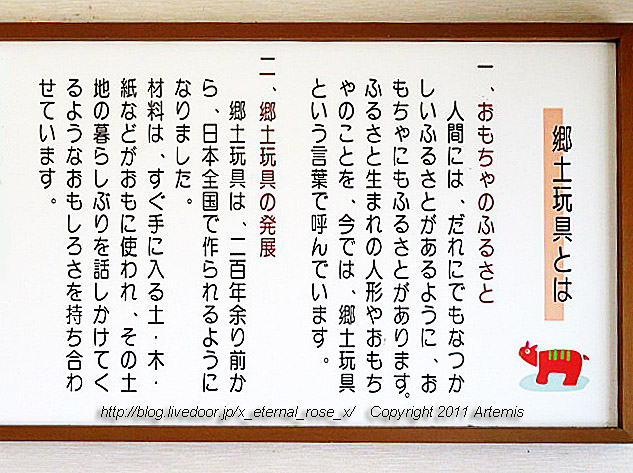 郷土玩具とは
一、おもちゃのふるさと
人間には、だれにでもなつか
しいふるさとがあるように、お
もちゃにもふるさとがあります。
ふるさと生まれの人形やおもち
ゃのことを、今では、郷土玩具
という言葉で呼んでいます。
二、郷土玩具の発展
郷土玩具は、二百年余り前か
ら、日本全国で作られるように
なりました。
材料は、すぐ手に入る土・木・
紙などがおもに使われ、その土
地の暮らしぶりを話しかけてく
るようなおもしろさを持ち合わ
せています。
http://blog.livedoor.jp/x_eternal_rose_x/ Copyright 2011 Artemis